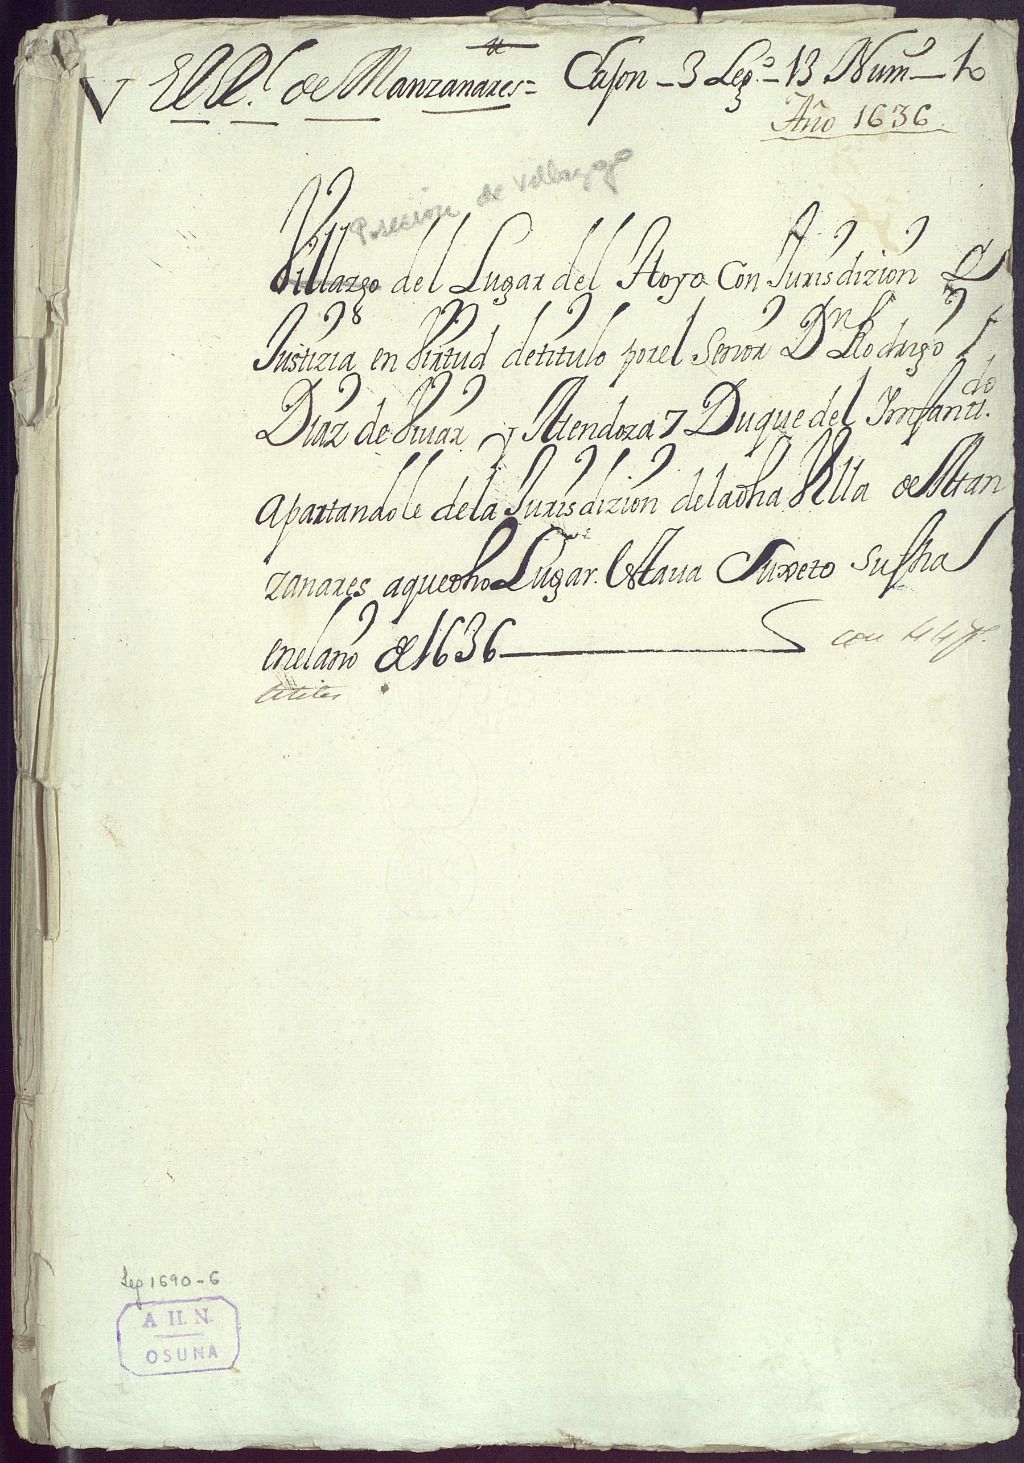 V El Rl. de Manzanares = Cajon - 3 Lego. - 13 Numo - 1o
Año 1636
de Villazgo
Villazgo del Lugar del Hoyo Con Jurisdizion
Justizia en Virtud de titulo por el Señor Dn Rodrigo
Diaz de Viuar y Mendoza 7 Duque del Infanta.do
apartandole de la Jurisdizion de la dha Villa de Man
zanares aque dho Lugar Estaua Suxeto Su fha
en el año de 1636
con
Leg 1690-6
A H. N.
OSUNA